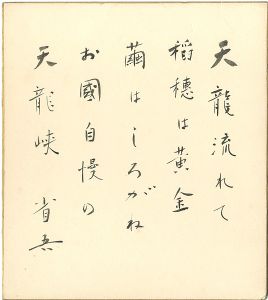 天龍流れて
稻穂は黄金
繭はしろがね
お國自慢の
天龍峡 省吾